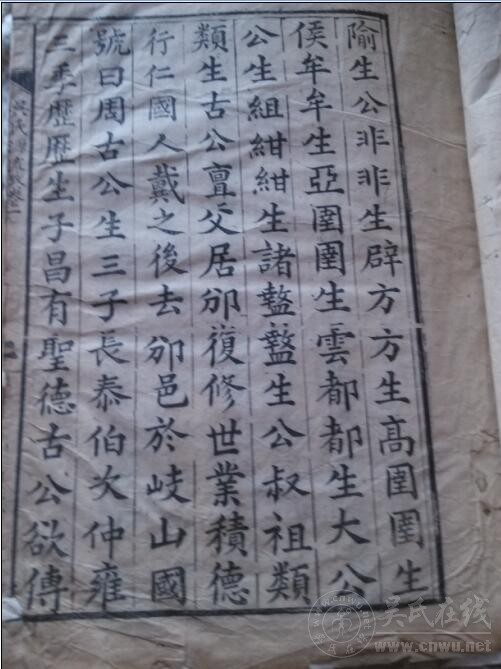 隃生公非非生辟方方生高圉圉生
侯牟牟生亞圉圉生雲都都生大公
公生組紺紺生諸盩盩生公叔祖類
類生古公亶父居邠復修世業積德
行仁國人戴之後去邠邑於岐山國
號曰周古公生三子長泰伯次仲雍
三季歷歷生子昌有聖德古公欲傳
吳氏
吳氏在线
www.cnwu.net